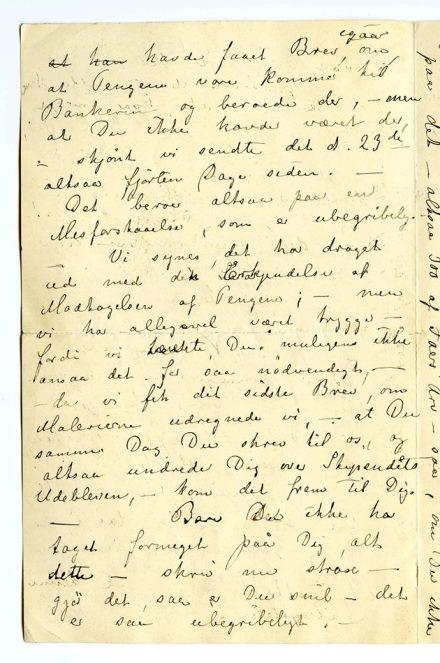 at han havde faaet Brev igaar om
at Pengene vare kommne til
Bankeren og beroede der, – men
at Du ikke havde været der,
– skjönt vi sendte det d. 23de
altsaa fjorten Dage siden. –
Det beroer altsaa paa en
Misforstaaelse, som er ubegribelig.
Vi synes, det har draget
ud med din af
Modtagelsen af Pengene; – men
vi har alligevel været trygge –
fordi vi tænkte, Du muligens ikke
ansaa det for saa nödvendigt, –
– da vi fik dit sidste Brev, om
Malerierne udregnede vi, – at Du
samme Dag Du skrev til os, og
altsaa undrede Dig over Stipendiets
Udebliven, – kom det frem til Dig.
– Bare Det ikke ha
taget formeget paa Dig, alt
dette – skriv nu strax –
gjö det, saa er Du snil – det
er saa ubegribeligt. –
paa det – altsaa 300 af Faers Arv – saa, om Du ikke